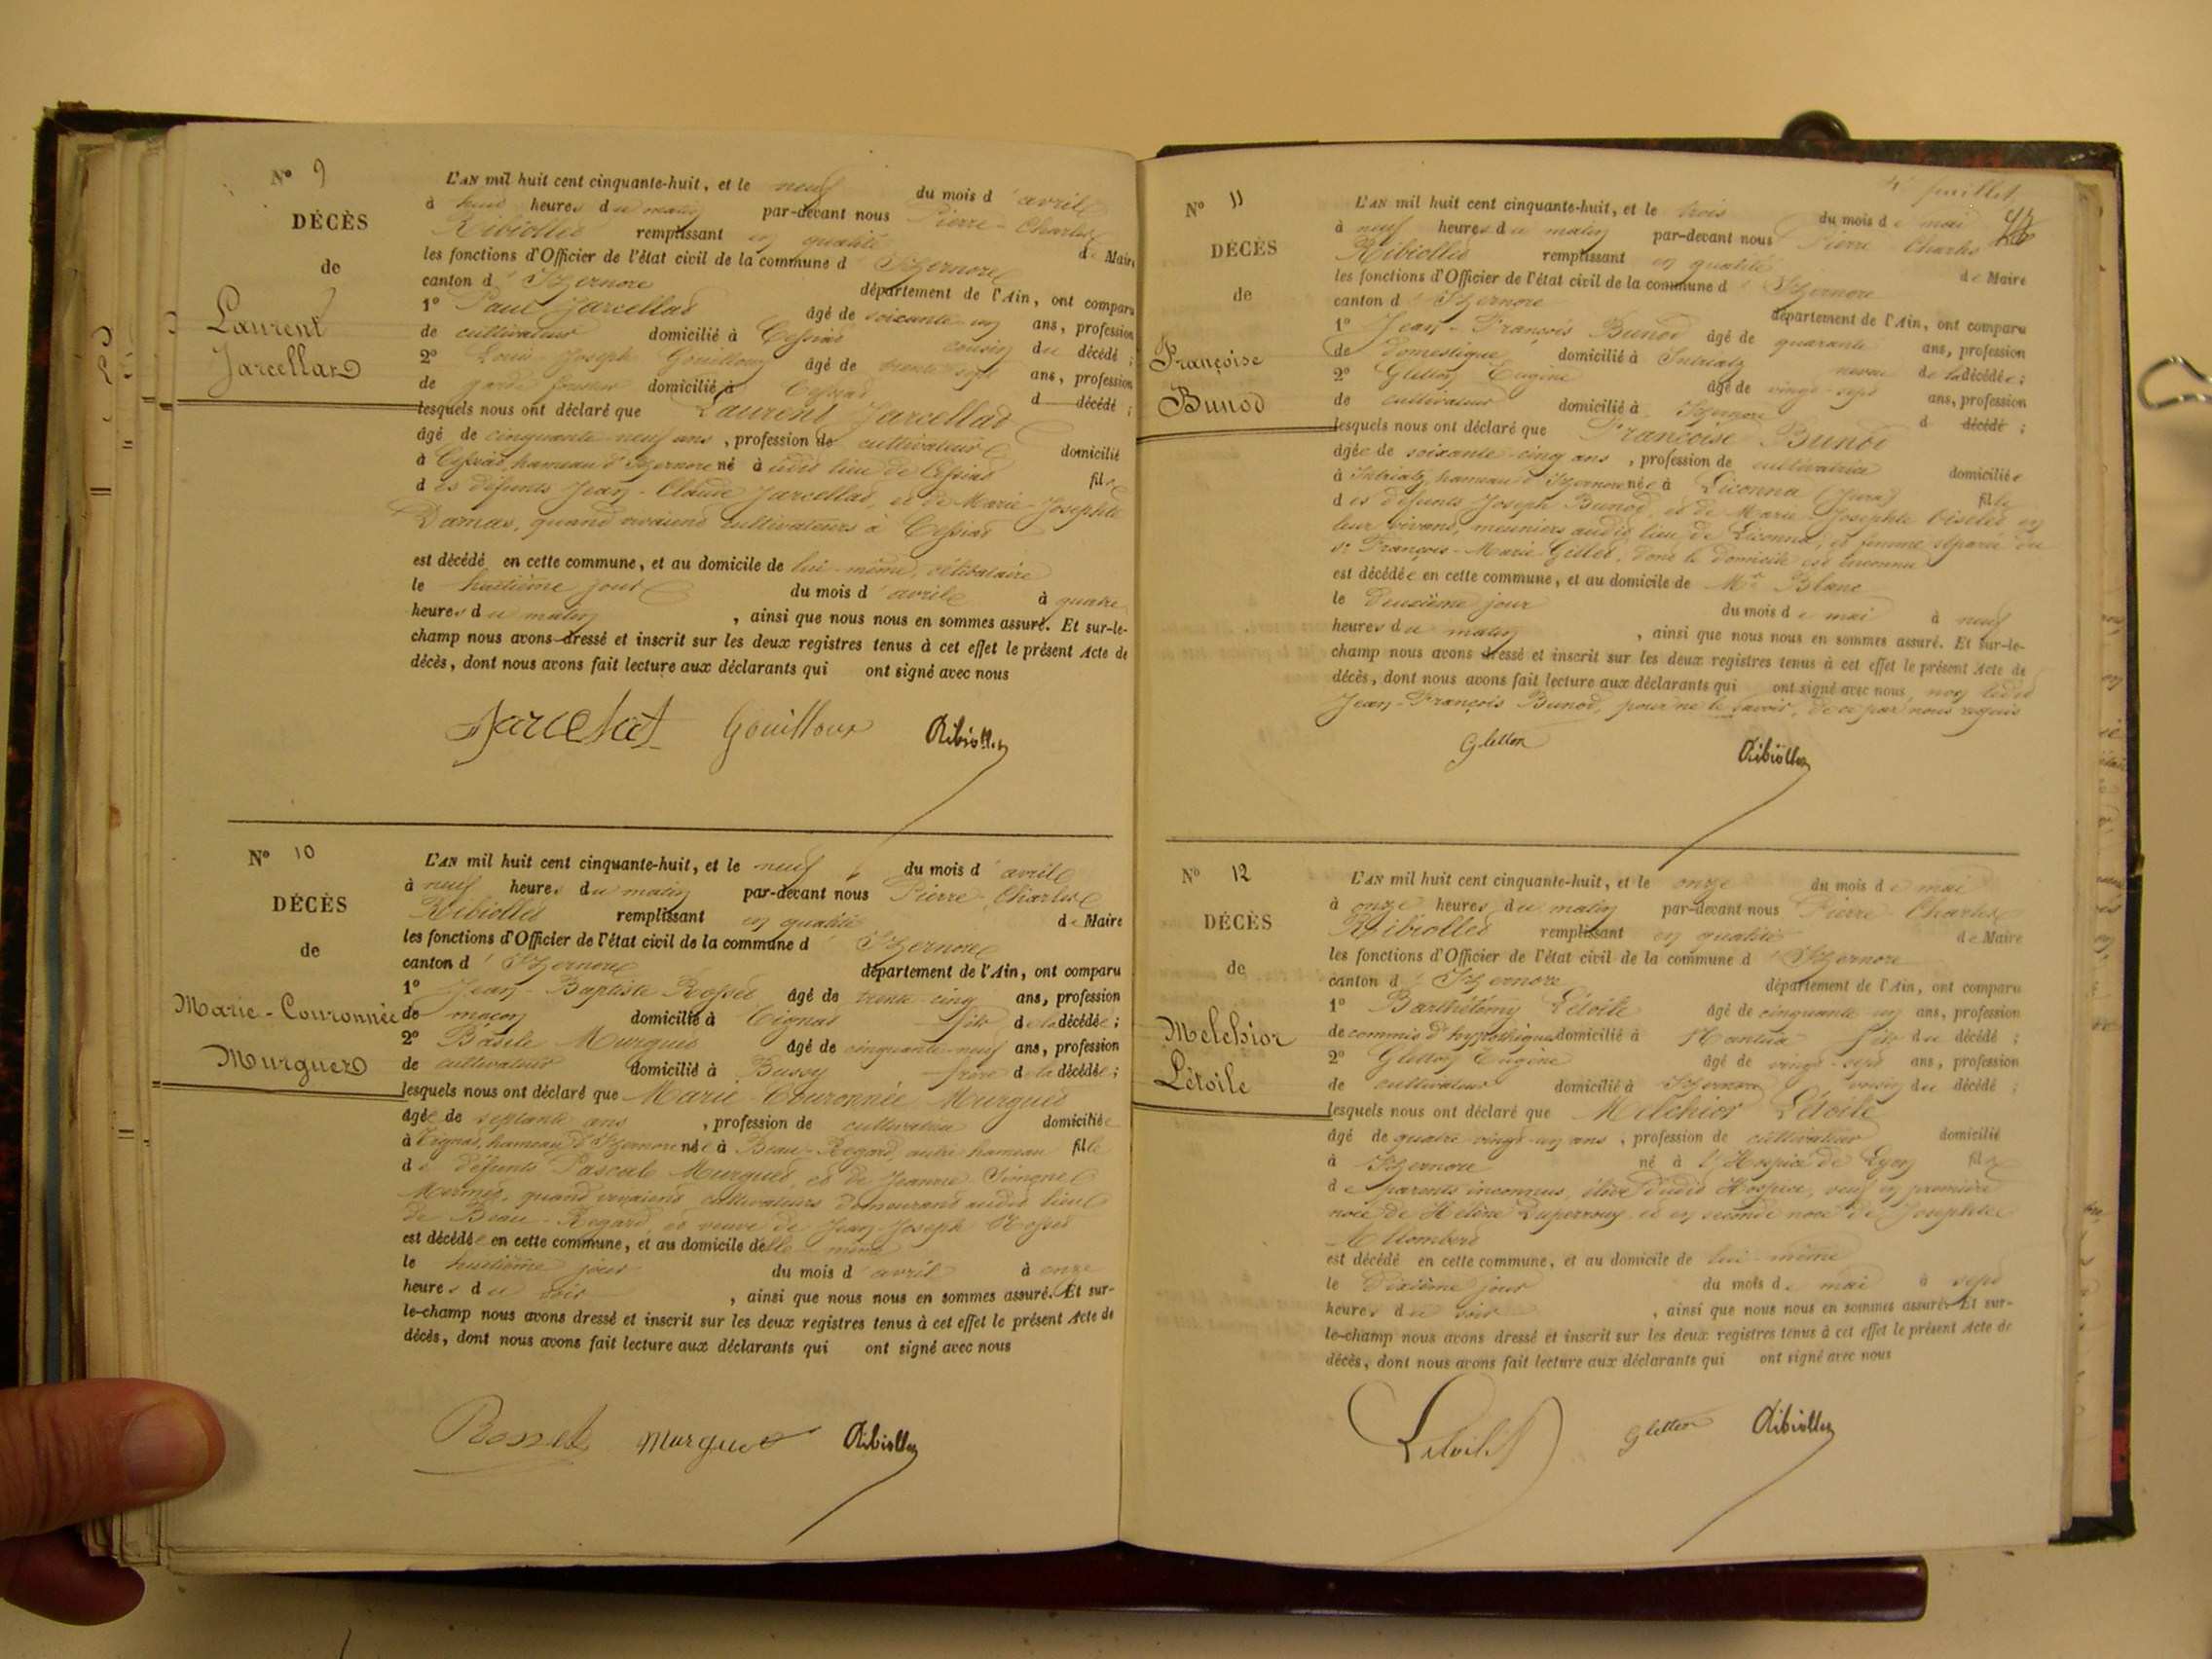 Nº 9
DÉCÈS
de
Laurent
Jarcellat
L'AN mil huit cent cinquante-huit, et le neuf du mois d'avril
à huit heures du matin par-devant nous Pierre-Charles
Ribiollet remplissant en qualité de Maire
les fonctions d'Officier de l'état civil de la commune d'Izernore
canton d'Izernore département de l'Ain, ont comparu
1º Paul Jarcellat âgé de soixante-un ans, profession
de cultivateur domicilié à Cessiat cousin du décédé ;
2º Louis-Joseph Gouilloux âgé de trente-sept ans, profession
de garde forestier domicilié à Cessiat d décédé ;
lesquels nous ont déclaré que Laurent Jarcellat
âgé de cinquante-neuf ans, profession de cultivateur domicilié
à Cessiat, hameau d'Izernore né à udit lieu de Cessiat fils
des défunts Jean-Claude Jarcellat, et de Marie-Josephte
Damas, quand vivaient cultivateurs à Cessiat
est décédé en cette commune, et au domicile de lui-même, célibataire
le huitième jour du mois d'avril à quatre
heures du matin, ainsi que nous nous en sommes assuré. Et sur-le-
champ nous avons dressé et inscrit sur les deux registres tenus à cet effet le présent Acte de
décès, dont nous avons fait lecture aux déclarants qui ont signé avec nous
Jarcellat Gouilloux Ribiollet
Nº 10
DÉCÈS
de
Marie-Couronnée
Murguet
L'AN mil huit cent cinquante-huit, et le neuf du mois d'avril
à neuf heures du matin par-devant nous Pierre-Charles
Ribiollet remplissant en qualité de Maire
les fonctions d'Officier de l'état civil de la commune d'Izernore
canton d'Izernore département de l'Ain, ont comparu
1º Jean-Baptiste Rosset âgé de trente-cinq ans, profession
de maçon domicilié à Tignat fils de la décédée ;
2º Basile Murguet âgé de cinquante-neuf ans, profession
de cultivateur domicilié à Bussy frère de la décédée ;
lesquels nous ont déclaré que Marie Couronnée Murguet
âgée de septante ans, profession de cultivateur domiciliée
à Tignat, hameau d'Izernore née à Beau-Regard, autre hameau fille
de défunts Pascal Murguet, et de Jeanne Simone
Mermet, quand vivaient cultivateurs demeurant audit lieu
de Beau-Regard, et veuve de Jean-Joseph Rosset
est décédée en cette commune, et au domicile d'elle-même
le huitième jour du mois d'avril à onze
heures du soir, ainsi que nous nous en sommes assuré. Et sur-
le-champ nous avons dressé et inscrit sur les deux registres tenus à cet effet le présent Acte de
décès, dont nous avons fait lecture aux déclarants qui ont signé avec nous
Rosset Murguet Ribiollet
feuillet
Nº 11
DÉCÈS
de
Françoise
Bunod
L'AN mil huit cent cinquante-huit, et le trois du mois de mai
à neuf heures du matin par-devant nous Pierre-Charles
Ribiollet remplissant en qualité de Maire
les fonctions d'Officier de l'état civil de la commune d'Izernore
canton d'Izernore département de l'Ain, ont comparu
1º Jean-François Bunod âgé de quarante ans, profession
de domestique domicilié à Intriat neveu de la décédée ;
2º Gletton Eugène âgé de vingt-sept ans, profession
de cultivateur domicilié à Izernore d décédé ;
lesquels nous ont déclaré que Françoise Bunod
âgée de soixante-cinq ans, profession de cultivatrice domiciliée
à Intriat, hameau d'Izernore née à Liconna (Jura) fille
des défunts Joseph Bunod, et de Marie-Josephte en
leur vivant, meuniers audit lieu de Liconna, et femme séparée du
sr François-Marie Gillet, dont le domicile est inconnu
est décédée en cette commune, et au domicile de Mr Blanc
le deuxième jour du mois de mai à neuf
heures du matin, ainsi que nous nous en sommes assuré. Et sur-le-
champ nous avons dressé et inscrit sur les deux registres tenus à cet effet le présent Acte de
décès, dont nous avons fait lecture aux déclarants qui ont signé avec nous, non ledit
Jean-François Bunod, pour ne le savoir, de ce par nous requis
Gletton Ribiollet
Nº 12
DÉCÈS
de
Melchior
Létoile
L'AN mil huit cent cinquante-huit, et le onze du mois de mai
à onze heures du matin par-devant nous Pierre-Charles
Ribiollet remplissant en qualité de Maire
les fonctions d'Officier de l'état civil de la commune d'Izernore
canton d'Izernore département de l'Ain, ont comparu
1º Barthélemy Létoile âgé de cinquante-un ans, profession
de commis d'hypothèques domicilié à Nantua fils du décédé ;
2º Gletton Eugène âgé de vingt-sept ans, profession
de cultivateur domicilié à Izernore voisin du décédé ;
lesquels nous ont déclaré que Melchior Létoile
âgé de quatre-vingt-un ans, profession de cultivateur domicilié
à Izernore né à l'Hospice de Lyon fils
de parents inconnus, élève dudit Hospice, veuf en première
noce de Hélène Duperroux et en seconde noce de Josephte
Allombert
est décédé en cette commune, et au domicile de lui-même
le dixième jour du mois de mai à sept
heures du soir, ainsi que nous nous en sommes assuré. Et sur-
le-champ nous avons dressé et inscrit sur les deux registres tenus à cet effet le présent Acte de
décès, dont nous avons fait lecture aux déclarants qui ont signé avec nous
Létoile Gletton Ribiollet